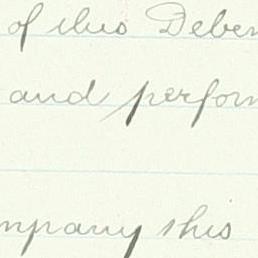 of this Deben
and perform
mpany this